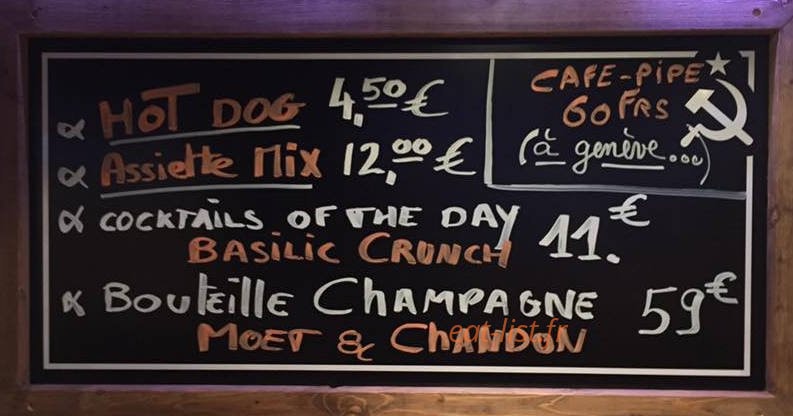 ∝ HOT DOG 4,50 €
∝ Assiette Mix 12,00 €
∝ COCKTAILS OF THE DAY 11.€
BASILIC CRUNCH
∝ Bouteille CHAMPAGNE 59€
MOET & CHANDON
CAFE-PIPE
60 FRS
(à genève...)
eat-list.fr